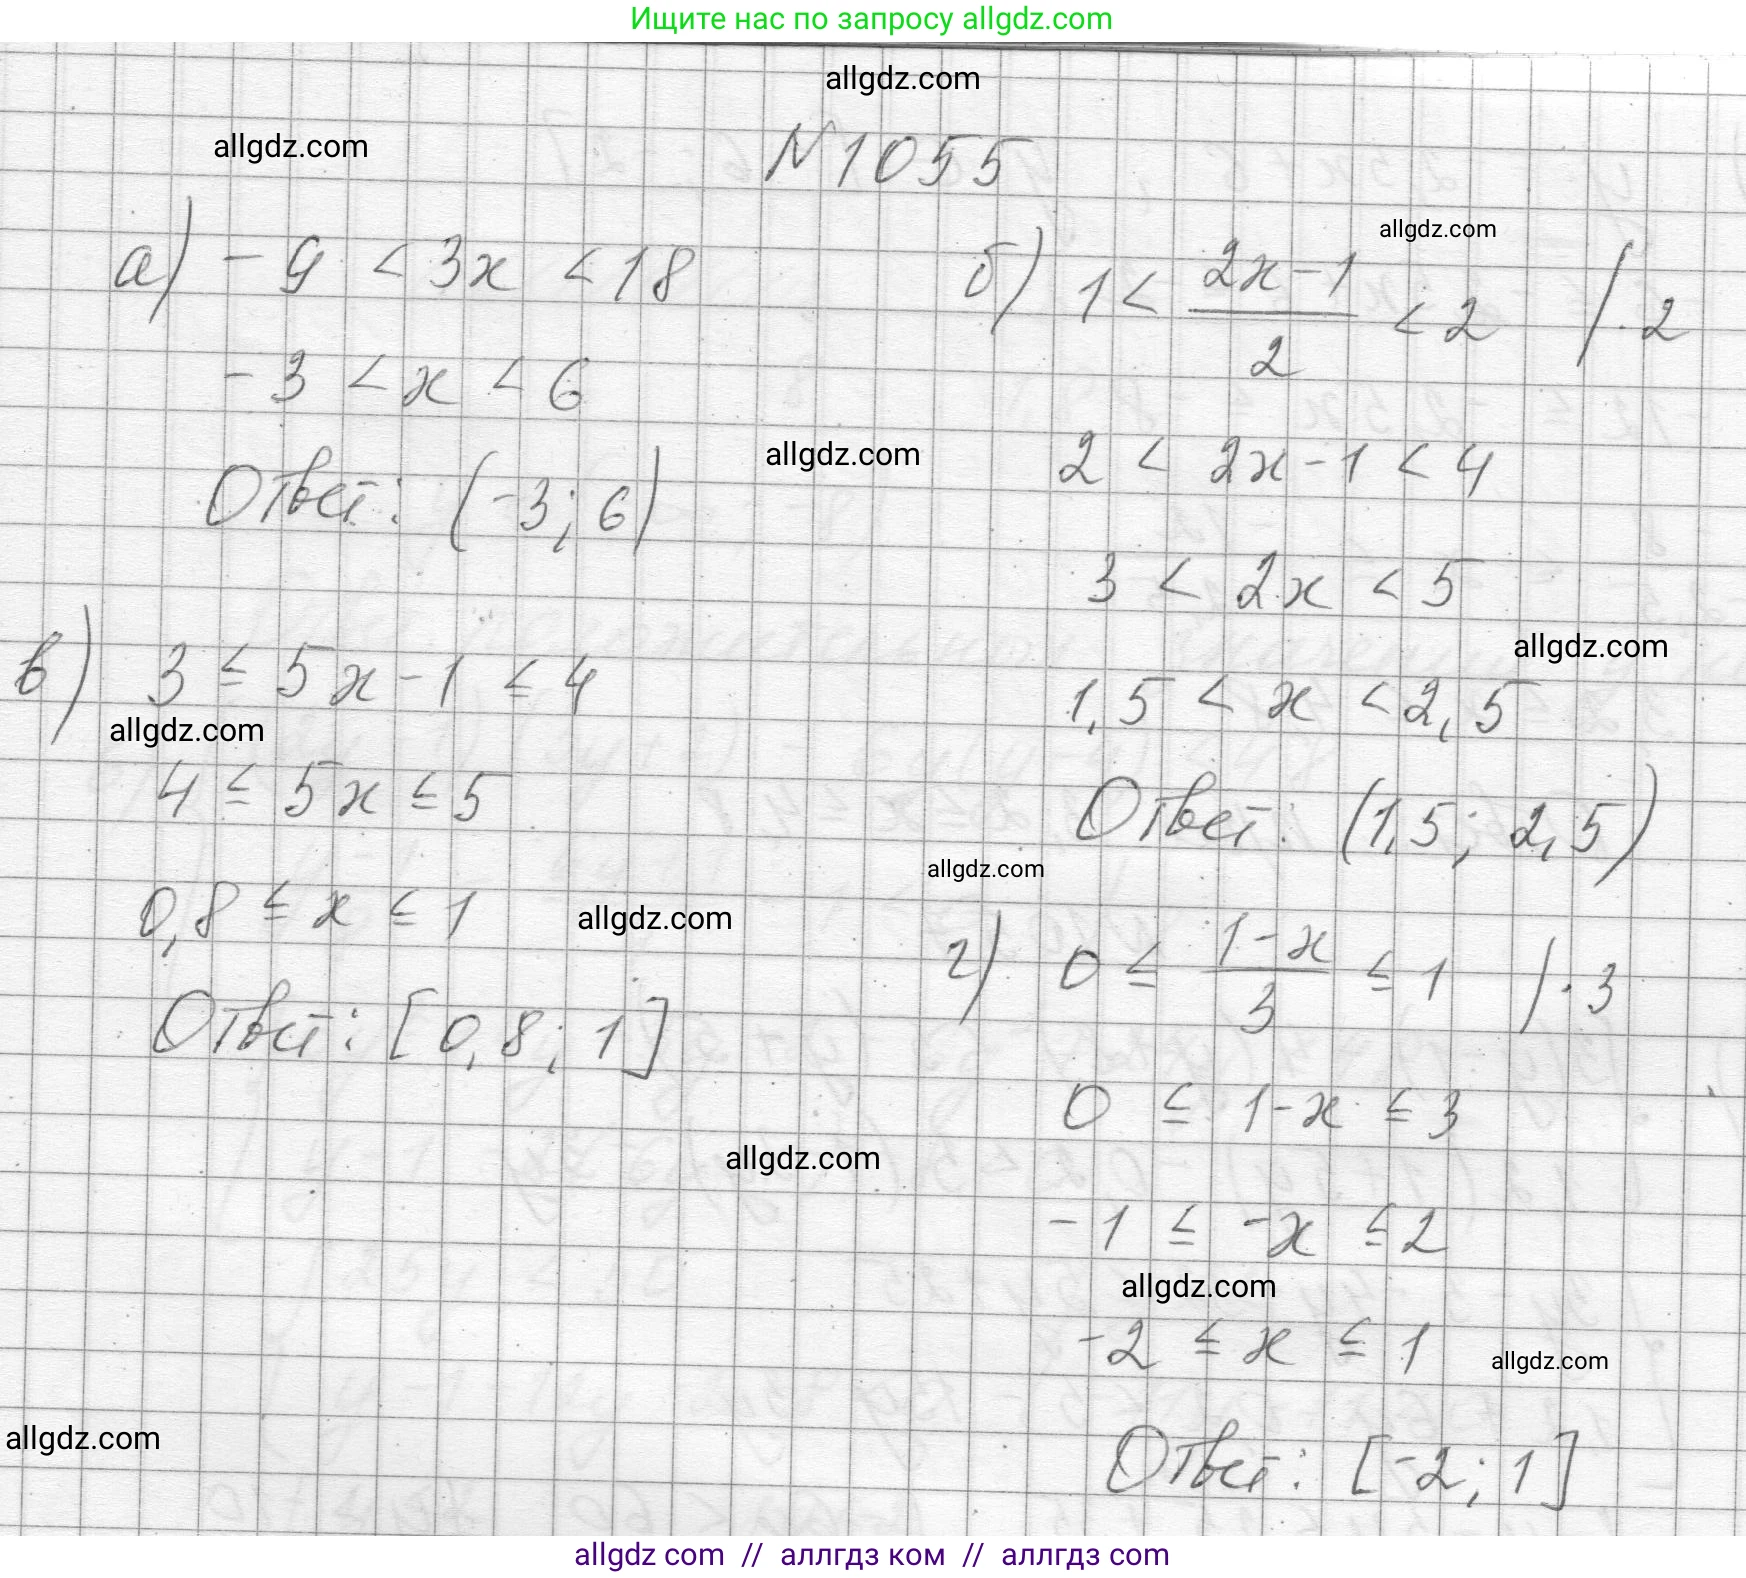 Ищите нас по запросу allgdz.com
allgdz.com
allgdz.com
N1055
allgdz.com
а) -9 < 3x < 18
-3 < x < 6
Ответ: (-3; 6)
б) 1 < \frac{2x-1}{2} < 2 / · 2
allgdz.com
2 < 2x-1 < 4
3 < 2x < 5
allgdz.com
1,5 < x < 2,5
Ответ: (1,5; 2,5)
в) 3 ≤ 5x-1 ≤ 4
allgdz.com
4 ≤ 5x ≤ 5
0,8 ≤ x ≤ 1
allgdz.com
Ответ: [0,8; 1]
allgdz.com
г) 0 ≤ \frac{1-x}{3} ≤ 1 / · 3
0 ≤ 1-x ≤ 3
allgdz.com
-1 ≤ -x ≤ 2
allgdz.com
-2 ≤ x ≤ 1
allgdz.com
Ответ: [-2; 1]
allgdz.com
allgdz com // аллгдз ком // аллгдз com